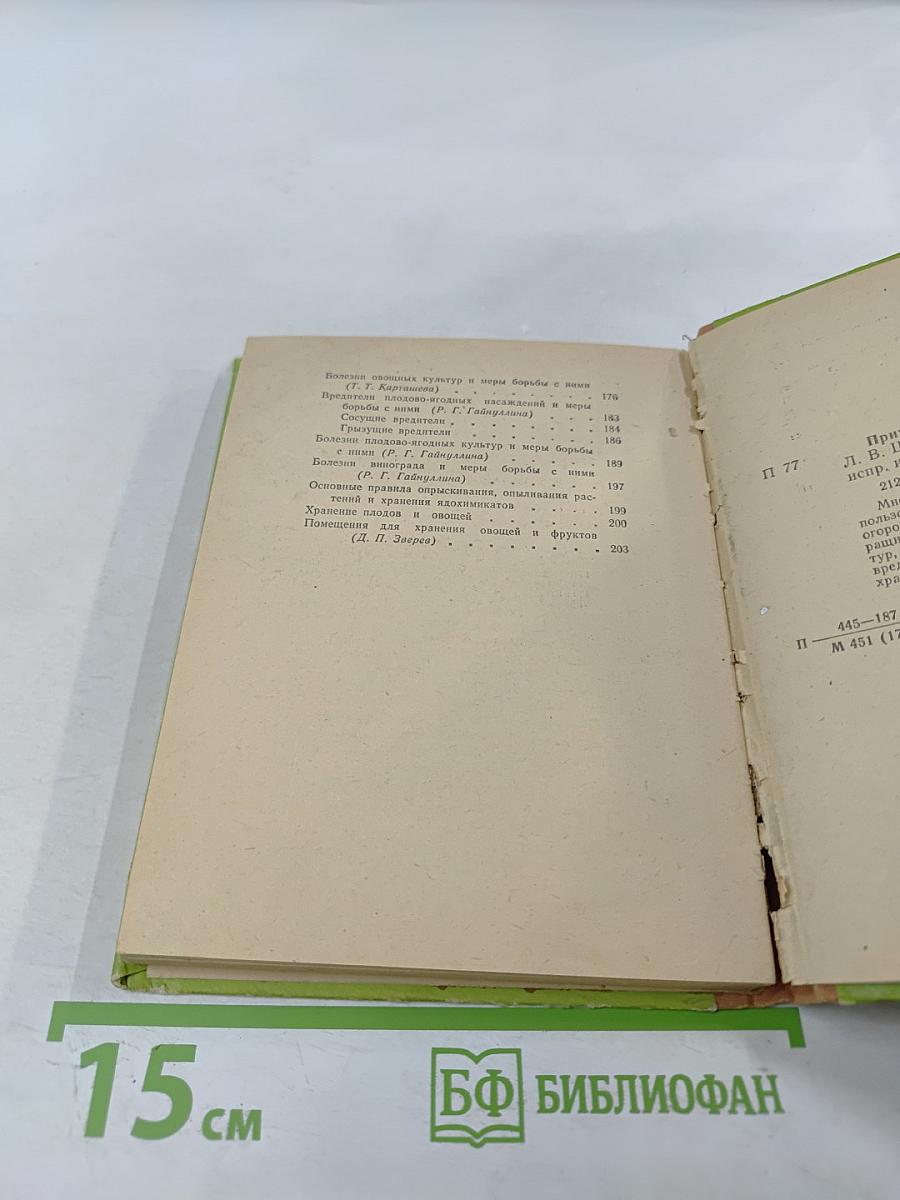 Болезни овощных культур и меры борьбы с ними
(Т. Т. Карташева) . . . . . . . . 176
Вредители плодово-ягодных насаждений и меры
борьбы с ними (Р. Г. Гайнуллина) . . . . 183
Сосущие вредители . . . . . . . . 184
Грызущие вредители . . . . . . . 186
Болезни плодово-ягодных культур и меры борьбы
с ними (Р. Г. Гайнуллина) . . . . . 189
Болезни винограда и меры борьбы с ними
(Р. Г. Гайнуллина) . . . . . . 197
Основные правила опрыскивания, опыливания рас-
тений и хранения ядохимикатов . . . . 199
Хранение плодов и овощей . . . . . . 200
Помещения для хранения овощей и фруктов
(Д. П. Зверев) . . . . . . . . 203
При
П 77
Л. В. Ц
испр. и
212
Мно
пользо
огоро
ращи
тур,
вред
хра
П
445—187
М 451 (17
15 см
БФ БИБЛИОФАН